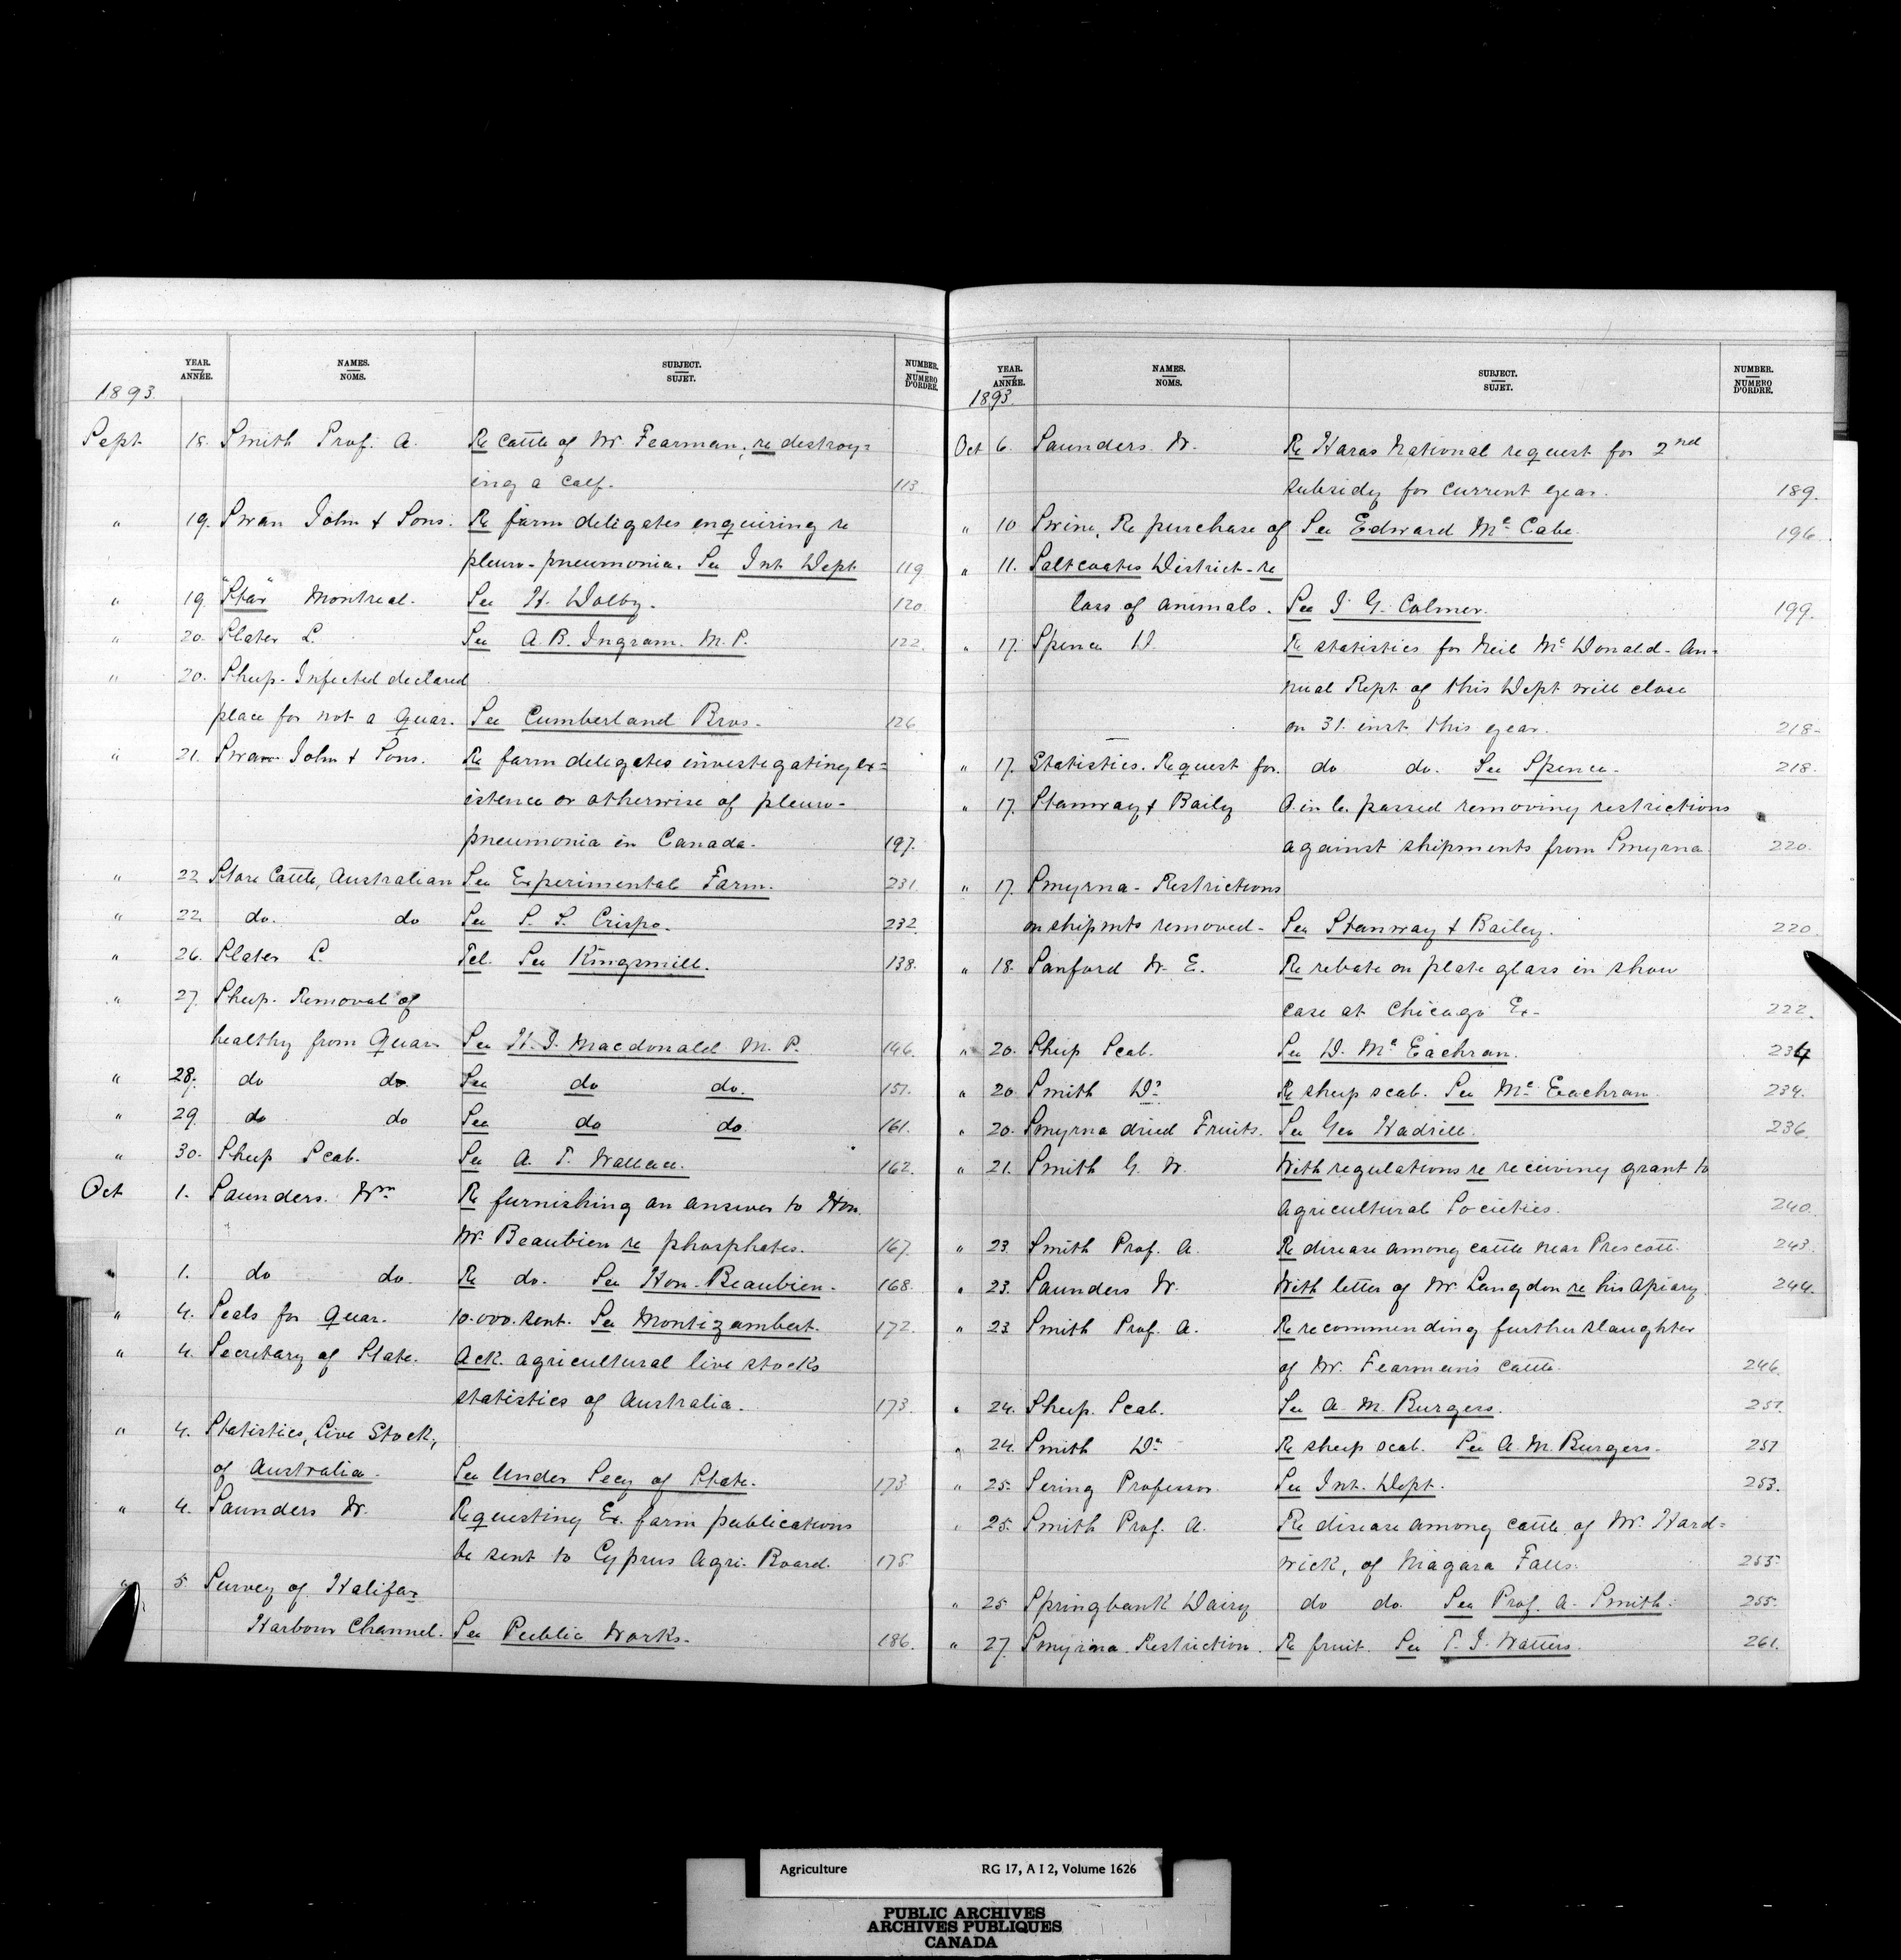 YEAR.
ANNÉE.
NAMES.
NOMS.
SUBJECT.
SUJET.
NUMBER.
NUMERO D'ORDRE.
1893.
Sept 18. Smith Prof. A. Re cattle of Mr. Fearman, re destroy=
ing a calf. 113.
" 19. Swan John & Sons. Re farm delegates enquiring re
pleuro-pneumonia. See Int. Dept 119
" 19. "Star" Montreal. See H. Dolby. 120.
" 20. Slater L. See A. B. Ingram. M. P. 122.
" 20. Sheep-Infected declared
place for not a Quar. See Cumberland Bros. 126
" 21. Swan John & Sons. Re farm delegates investigating ex=
istence or otherwise of pleuro-
pneumonia in Canada. 197.
" 22 Store Cattle, Australian See Experimental Farm. 231.
" 22 do. do See S. S. Crispo. 232
" 26. Slater L Tel. See Kingsmill. 138.
" 27. Sheep. Removal of
healthy from Quar. See H. J. Macdonald M. P. 146.
" 28. do do. See do do. 151.
" 29. do do See do do 161.
" 30. Sheep Scab. See A. T. Wallace. 162.
Oct 1. Saunders Wm Re furnishing an answer to Hon.
Mr. Beaubien re phosphates. 167.
1. do do. Re do. See Hon. Beaubien. 168.
" 4. Seals for Quar. 10.000. sent. See Montizambert. 172.
" 4. Secretary of State. Ack. agricultural live stocks
statistics of Australia. 173.
" 4. Statistics, Live Stock,
of Australia. See Under Secy of State. 173.
" 4. Saunders W. Requesting Ex. farm publications
be sent to Cyprus Agri. Board. 175.
" 5 Survey of Halifax
Harbour Channel. See Public Works. 186.
YEAR.
ANNÉE.
NAMES.
NOMS.
SUBJECT.
SUJET.
NUMBER.
NUMERO D'ORDRE.
1893.
Oct 6. Saunders W. Re Haras National request for 2nd
subsidy for current year. 189.
" 10 Swine, Re purchase of See Edward Mc Cabe. 196.
" 11. Saltcoates District-re
loss of animals. See J. G. Colmer. 199.
" 17. Spence D. Re statistics for Neil Mc Donald-An=
nual Rept of this Dept will close
on 31. inst. this year. 218.
" 17. Statistics. Request for. do do. See Spence. 218.
" 17. Stanway & Baily O. in C. passed removing restrictions
against shipments from Smyrna. 220.
" 17. Smyrna-Restrictions
on shipmts removed- See Stanway & Bailey. 220.
" 18. Sanford W. E. Re rebate on plate glass in show
case at Chicago Ex- 222.
" 20. Sheep Scab. See D. Mc Eachran. 234
" 20. Smith Dr. Re sheep scab. See Mc Eachran. 234.
" 20. Smyrna dried Fruits. See Geo Hadrill. 236.
" 21. Smith G. W. With regulations re receiving grant to
Agricultural Societies. 240.
" 23. Smith Prof. A. Re disease among cattle near Prescott. 243.
" 23. Saunders W. With letter of Mr. Langdon re his Apiary. 244.
" 23 Smith Prof. A. Re recommending further slaughter
of Mr. Fearman's cattle. 246.
" 24. Sheep Scab. See A. M. Burgess. 251.
" 24. Smith Dr. Re sheep scab. See A. M. Burgess. 251
" 25. Sering Professor. See Int. Dept. 253.
" 25. Smith Prof. A. Re disease among cattle of Mr. Hard=
wick, of Niagara Falls. 255.
" 25 Springbank Dairy do do. See Prof. A. Smith. 255.
" 27. Smyrna Restriction. Re fruit. See T. J. Watters. 261.
Agriculture RG 17, A I 2, Volume 1626
PUBLIC ARCHIVES
ARCHIVES PUBLIQUES
CANADA